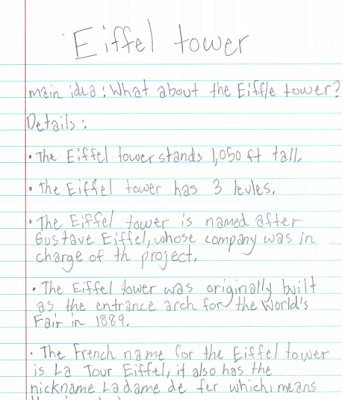 Eiffel tower
main idea: What about the Eiffle tower?
Details:
• The Eiffel tower stands 1,050 ft tall.
• The Eiffel tower has 3 levles.
• The Eiffel tower is named after
Gustave Eiffel, whose company was in
charge of th project.
• The Eiffel tower was originally built
as the entrance arch for the World's
Fair in 1889.
• The French name for the Eiffel tower
is La Tour Eiffel, it also has the
nickname La dame de fer which means